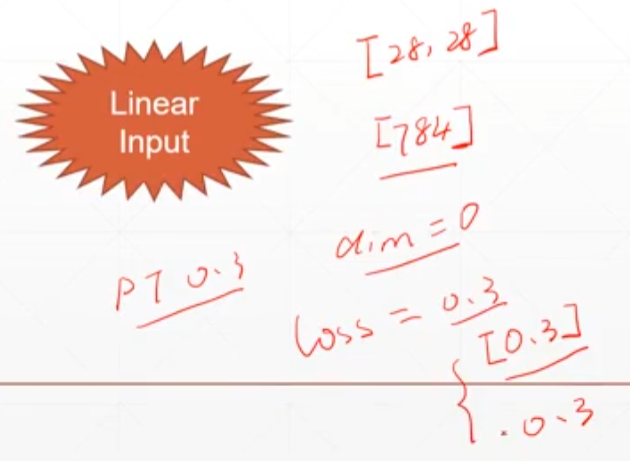 Linear
Input
[28, 28]
[784]
dim = 0
PT 0.3
loss = 0.3
[0.3]
. 0.3